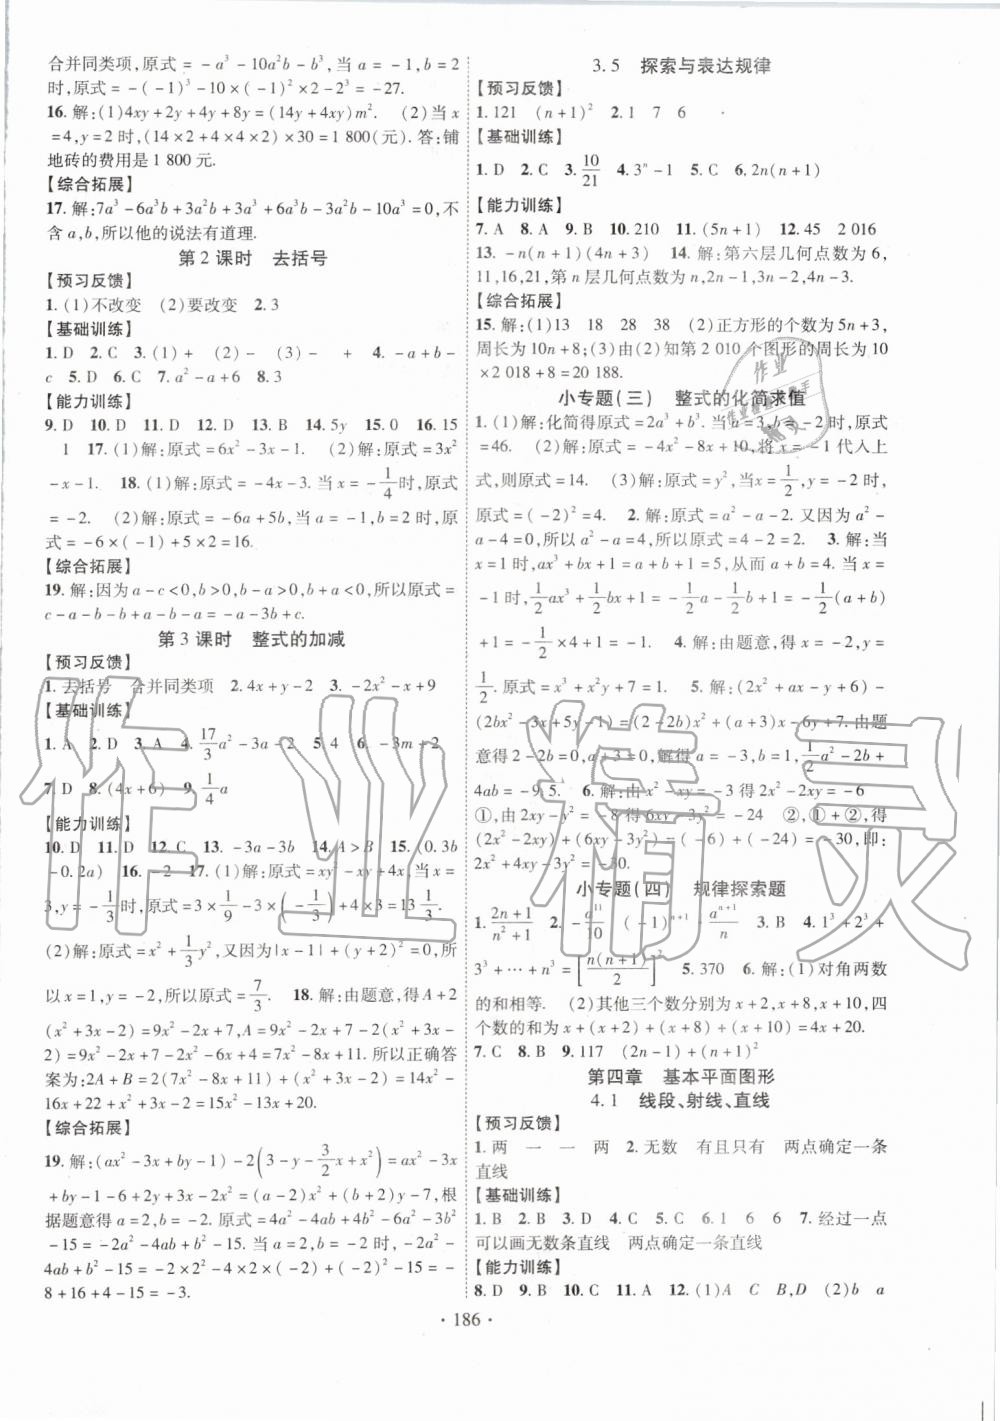 合并同类项,原式=-a³-10a²b-b³,当a=-1,b=2
时,原式=-(-1)³-10×(-1)²×2-2³=-27.
16.解:(1)4xy+2y+4y+8y=(14y+4xy)m². (2)当x
=4,y=2时,(14×2+4×4×2)×30=1 800(元).答:铺
地砖的费用是1 800元.
【综合拓展】
17.解:7a³-6a³b+3a²b+3a³+6a³b-3a²b-10a³=0,不
含a,b,所以他的说法有道理.
第2课时 去括号
【预习反馈】
1.(1)不改变 (2)要改变 2.3
【基础训练】
1.D 2.C 3.(1)+ (2)- (3)- + 4.-a+b-
c 5.D 6.C 7.a²-a+6 8.3
【能力训练】
9.D 10.D 11.D 12.D 13.B 14.5y 15.0 16.15
1 17.(1)解:原式=6x²-3x-1. (2)解:原式=3x²
-x-1. 18.(1)解:原式=-4x-3.当x=-1/4时,原式
=-2. (2)解:原式=-6a+5b,当a=-1,b=2时,原
式=-6×(-1)+5×2=16.
【综合拓展】
19.解:因为a-c<0,b>0,b-a>0,b+a<0,所以原式=
c-a-b-b+a-b-a=-a-3b+c.
第3课时 整式的加减
【预习反馈】
1.去括号 合并同类项 2.4x+y-2 3.-2x²-x+9
【基础训练】
1.A 2.D 3.A 4.17/3a²-3a-2 5.4 6.-3m+2
7.D 8.(4x+6) 9.1/4a
【能力训练】
10.D 11.D 12.C 13.-3a-3b 14.A>B 15.(0.3b
-0.2a) 16.-2 17.(1)解:原式=xy²-xy+4x,当x=
3,y=-1/3时,原式=3×1/9-3×(-1/3)+4×3=13 1/3.
(2)解:原式=x²+1/3y²,又因为|x-1|+(y+2)²=0,所
以x=1,y=-2,所以原式=7/3. 18.解:由题意,得A+2
(x²+3x-2)=9x²-2x+7,A=9x²-2x+7-2(x²+3x-
2)=9x²-2x+7-2x²-6x+4=7x²-8x+11.所以正确答
案为:2A+B=2(7x²-8x+11)+x²+3x-2=14x²-
16x+22+x²+3x-2=15x²-13x+20.
【综合拓展】
19.解:(ax²-3x+by-1)-2(3-y-3/2x+x²)=ax²-3x
+by-1-6+2y+3x-2x²=(a-2)x²+(b+2)y-7,根
据题意得a=2,b=-2.原式=4a²-4ab+4b²-6a²-3b²
-15=-2a²-4ab+b²-15.当a=2,b=-2时,-2a²-
4ab+b²-15=-2×2²-4×2×(-2)+(-2)²-15=-
8+16+4-15=-3.
3.5 探索与表达规律
【预习反馈】
1.121 (n+1)² 2.1 7 6
【基础训练】
1.D 2.C 3.10/21 4.3ⁿ-1 5.C 6.2n(n+1)
【能力训练】
7.A 8.A 9.B 10.210 11.(5n+1) 12.45 2 016
13.-n(n+1)(4n+3) 14.解:第六层几何点数为6,
11,16,21,第n层几何点数为n,2n-1,3n-2,4n-3.
【综合拓展】
15.解:(1)13 18 28 38 (2)正方形的个数为5n+3,
周长为10n+8;(3)由(2)知第2 010个图形的周长为10
×2 018+8=20 188.
小专题(三) 整式的化简求值
1.(1)解:化简得原式=2a³+b³.当a=3,b=-2时,原式
=46. (2)解:原式=-4x²-8x+10,将x=-1代入上
式,则原式=14. (3)解:原式=y²,当x=1/2,y=-2时,
原式=(-2)²=4. 2.解:原式=a²-a-2.又因为a²-
a-4=0,所以a²-a=4,所以原式=4-2=2. 3.解:当
x=1时,ax³+bx+1=a+b+1=5,从而a+b=4.当x=
-1时,1/2ax³+1/2bx+1=-1/2a-1/2b+1=-1/2(a+b)
+1=-1/2×4+1=-1. 4.解:由题意,得x=-2,y=
1/2.原式=x²+y²=(-2)²+(1/2)²=4 1/4. 5.解:(2x²+ax-y+6)-
(2bx²-3x+5y-1)=(2-2b)x²+(a+3)x-6y+7.由题
意得2-2b=0,a+3=0,解得a=-3,b=1,1/2a²-2b+
4ab=-9.5. 6.解:由x²-xy=-3得2x²-2xy=-6
①,由2xy-y²=-8得6xy-3y²=-24 ②,①+②,得
(2x²-2xy)+(6xy-3y²)=(-6)+(-24)=-30,即:
2x²+4xy-3y²=-30.
小专题(四) 规律探索题
1.(2n+1)/(n²+1) 2.-a¹¹/10 (-1)ⁿ⁺¹·aⁿ⁺¹/n 3.B 4.1³+2³+
3³+…+n³=[n(n+1)/2]² 5.370 6.解:(1)对角两数
的和相等. (2)其他三个数分别为x+2,x+8,x+10,四
个数的和为x+(x+2)+(x+8)+(x+10)=4x+20.
7.C 8.B 9.117 (2n-1)+(n+1)²
第四章 基本平面图形
4.1 线段、射线、直线
【预习反馈】
1.两 一 一 两 2.无数 有且只有 两点确定一条
直线
【基础训练】
1.B 2.B 3.D 4.D 5.C 6.1 6 6 7.经过一点
可以画无数条直线 两点确定一条直线
【能力训练】
8.D 9.B 10.C 11.A 12.(1)A C B,D (2)b a
·186·
作业精灵